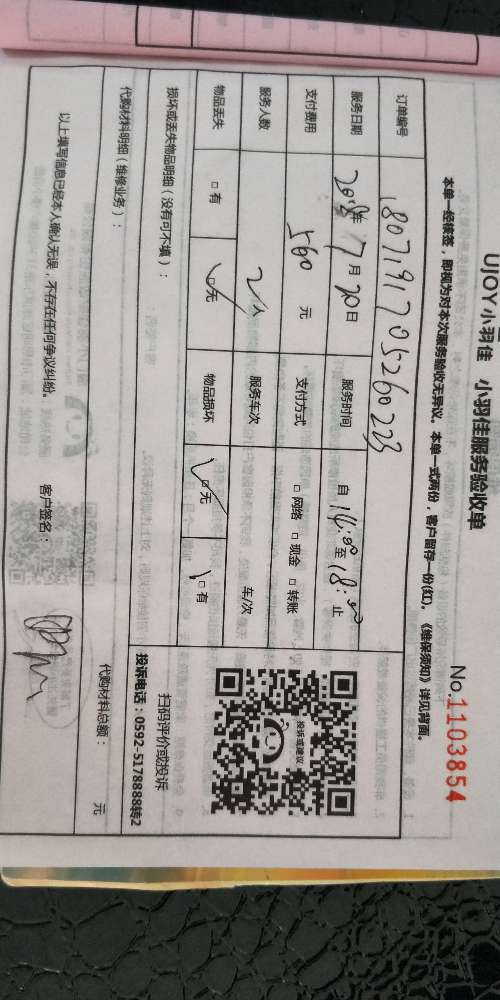 UJOY小羽佳 小羽佳服务验收单
No.1103854
本单一经横签，即视为对本次服务验收无异议。本单一式两份，客户留存一份(红)。《维保须知》详见背面。
订单编号 1807191705260223
服务日期 2018年7月20日 服务时间 自14:00至18:00止
支付费用 560 元 支付方式 □网络 □现金 □转账
服务人数 2人 服务车次 车/次
物品丢失 □有 □无 物品损坏 □无 □有
损坏或丢失物品明细（没有可不填）：
投诉或建议
扫码评价或投诉
投诉电话：0592-5178888转2
代购材料明细（维修业务）：
代购材料总额： 元
以上填写信息已经本人确认无误，不存在任何争议纠纷。 客户签名：